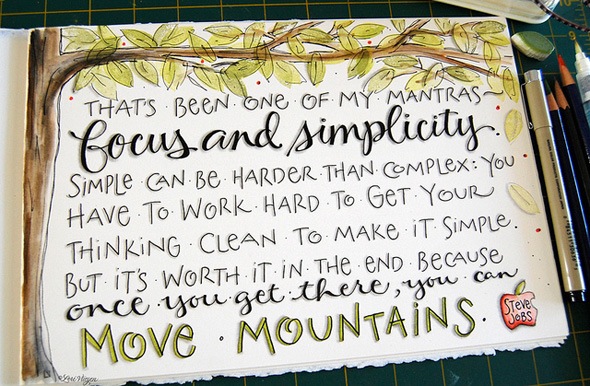 THAT'S · BEEN · ONE · OF · MY · MANTRAS-
focus and simplicity.
SIMPLE · CAN · BE · HARDER · THAN · COMPLEX: YOU
HAVE · TO · WORK · HARD · TO · GET · YOUR
THINKING · CLEAN · TO · MAKE · IT · SIMPLE.
BUT · IT'S · WORTH · IT · IN · THE · END · BECAUSE
once · you · get · there, you · can
MOVE · MOUNTAINS.
STEVE
JOBS